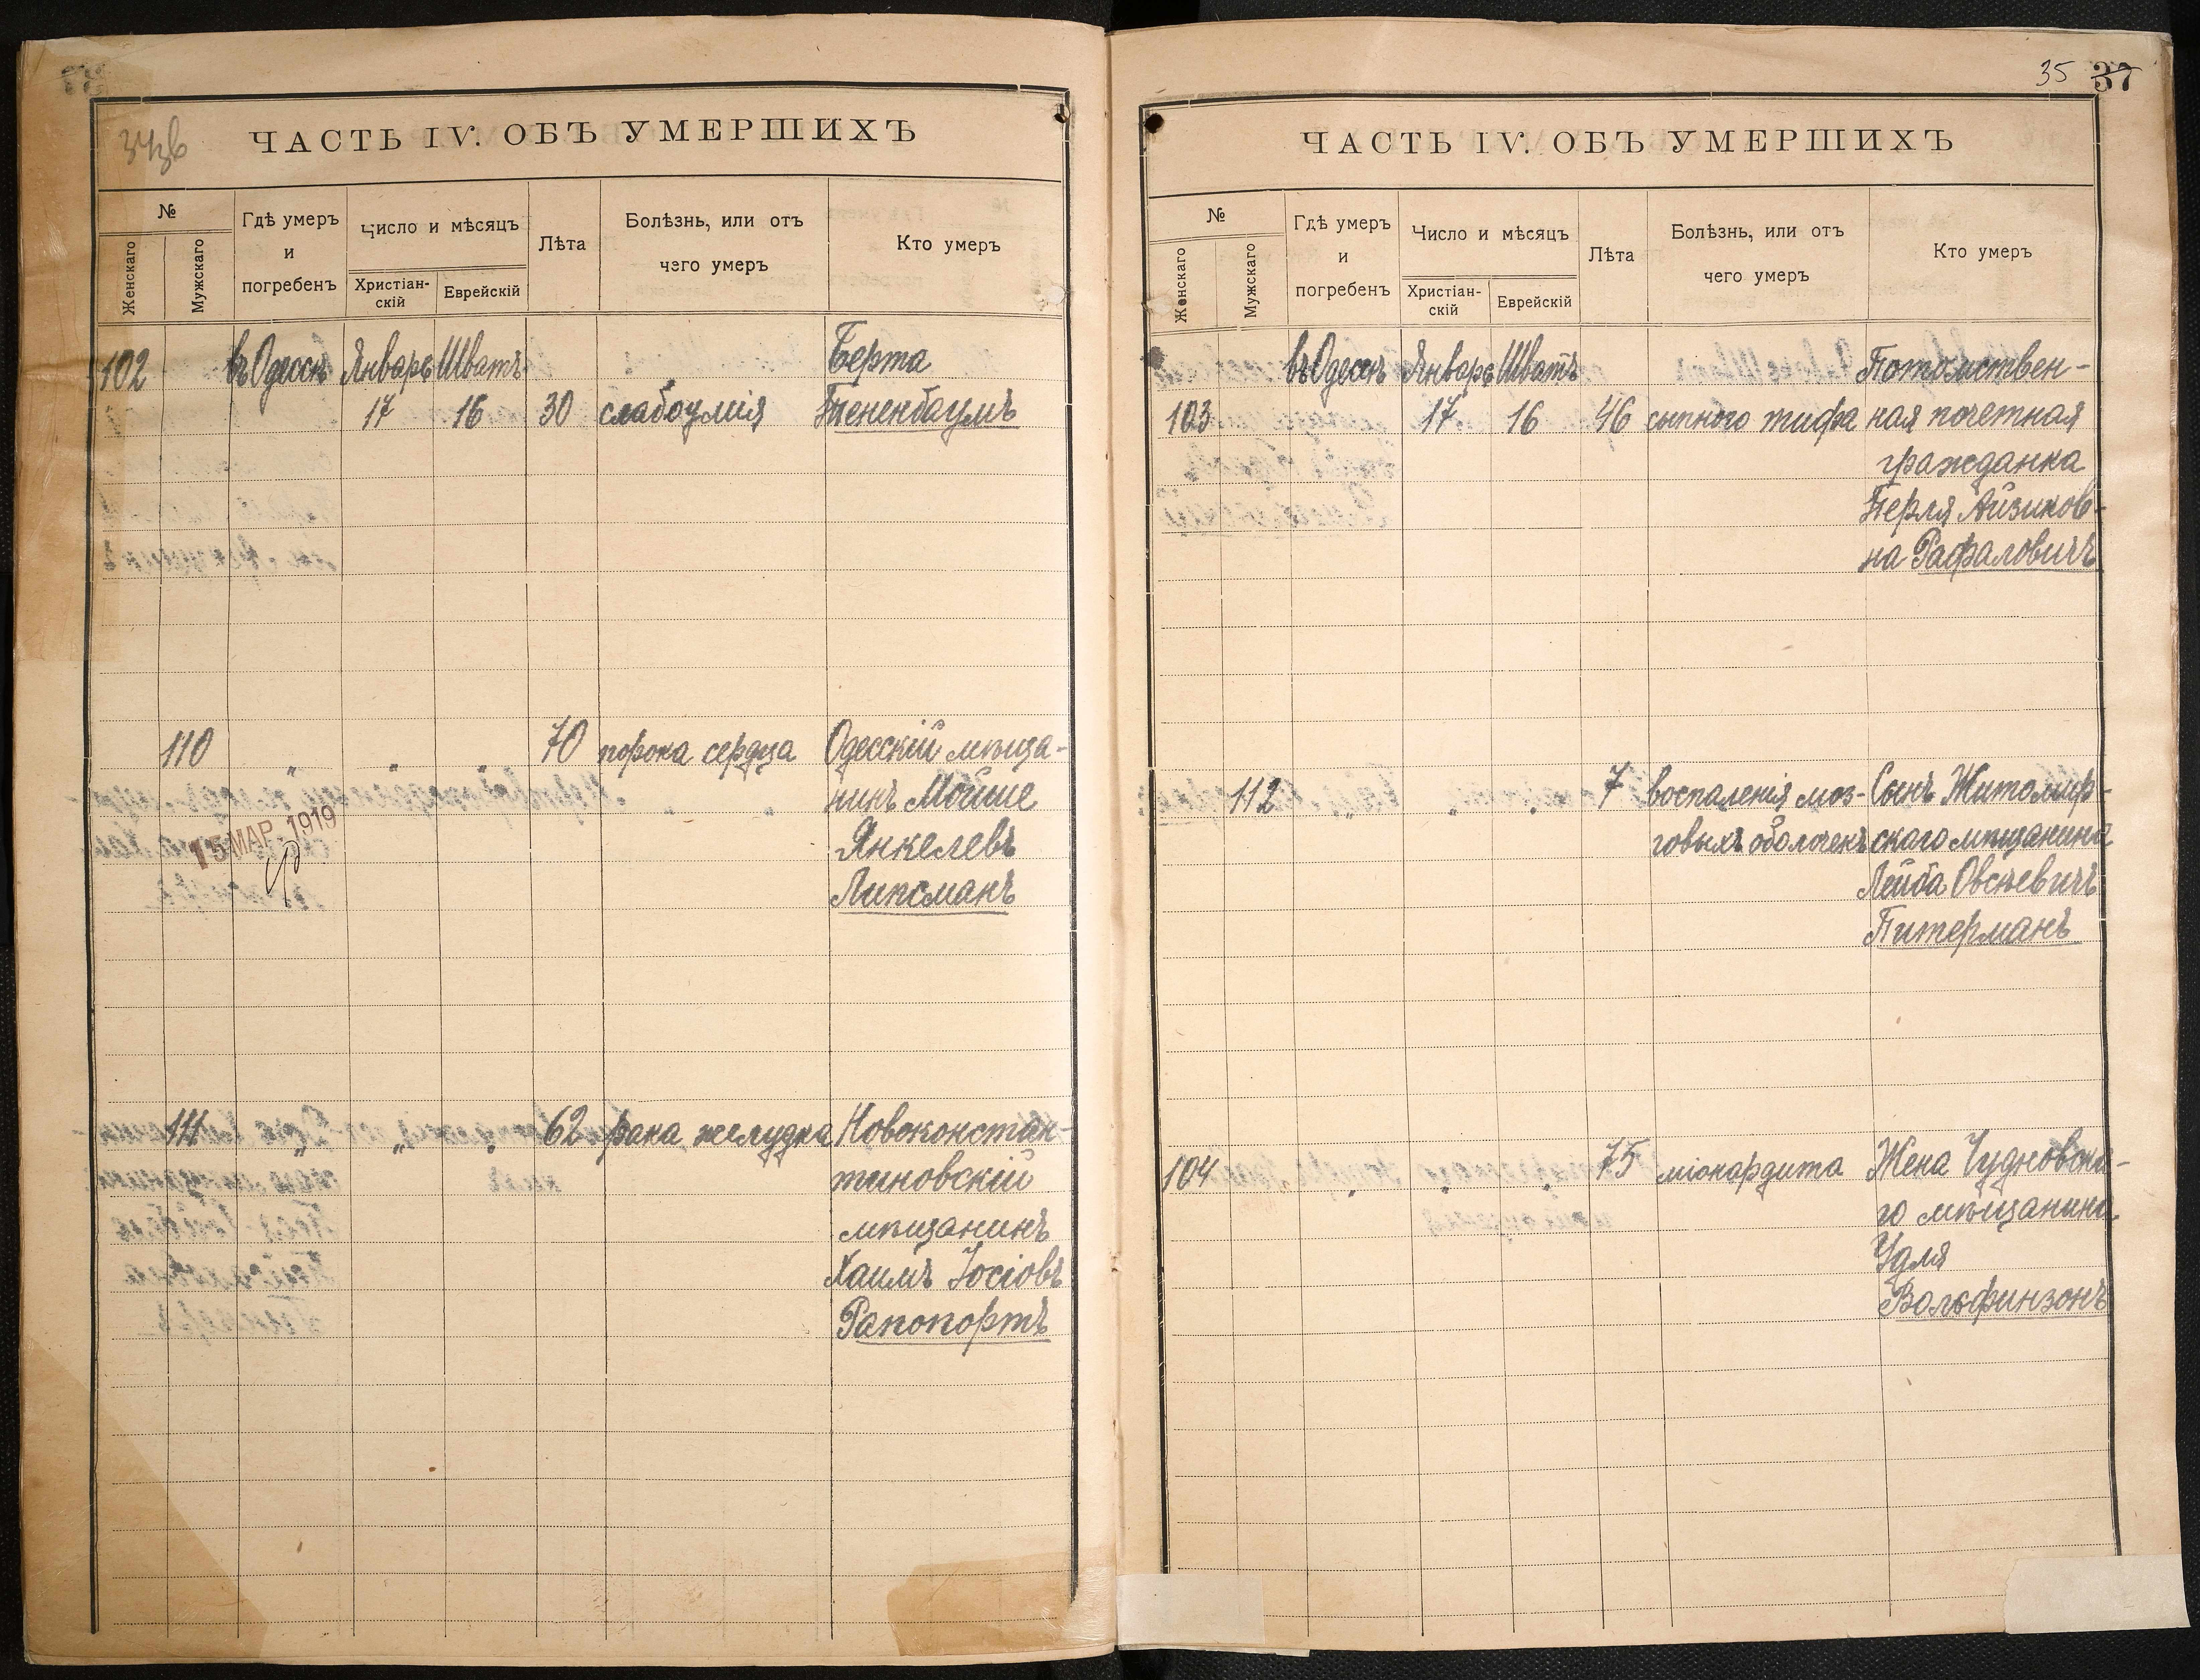 34зв
ЧАСТЬ IV. ОБЪ УМЕРШИХЪ
№
Женскаго
Мужскаго
Гдѣ умеръ
и
погребенъ
Число и мѣсяцъ
Христіан-
скій
Еврейскій
Лѣта
Болѣзнь, или отъ
чего умеръ
Кто умеръ
102 въ Одессѣ Январь Шватъ Берта
17 16 30 слабоумія Тененбаумъ
110 " " " 70 порока сердца Одесскій мѣща-
нинъ Мойше
15 МАР. 1919
Янкелевъ
Липсманъ
111 " " " 62 рака желудка Новоконстан-
тиновскій
мѣщанинъ
Хаимъ Іосіовъ
Рапопортъ
35 37
ЧАСТЬ IV. ОБЪ УМЕРШИХЪ
№
Женскаго
Мужскаго
Гдѣ умеръ
и
погребенъ
Число и мѣсяцъ
Христіан-
скій
Еврейскій
Лѣта
Болѣзнь, или отъ
чего умеръ
Кто умеръ
въ Одессѣ Январь Шватъ Потомствен-
103 17 16 46 сыпного тифа ная почетная
гражданка
Перля Айзиков-
на Рафаловичъ
112 " " " 7 воспаленія моз- Сынъ Житомир-
говыхъ оболочекъ скаго мѣщанина
Лейба Овсѣевичъ
Питерманъ
104 " " " 75 міокардита Жена Чудновска-
го мѣщанина
Удля
Вольфинзонъ